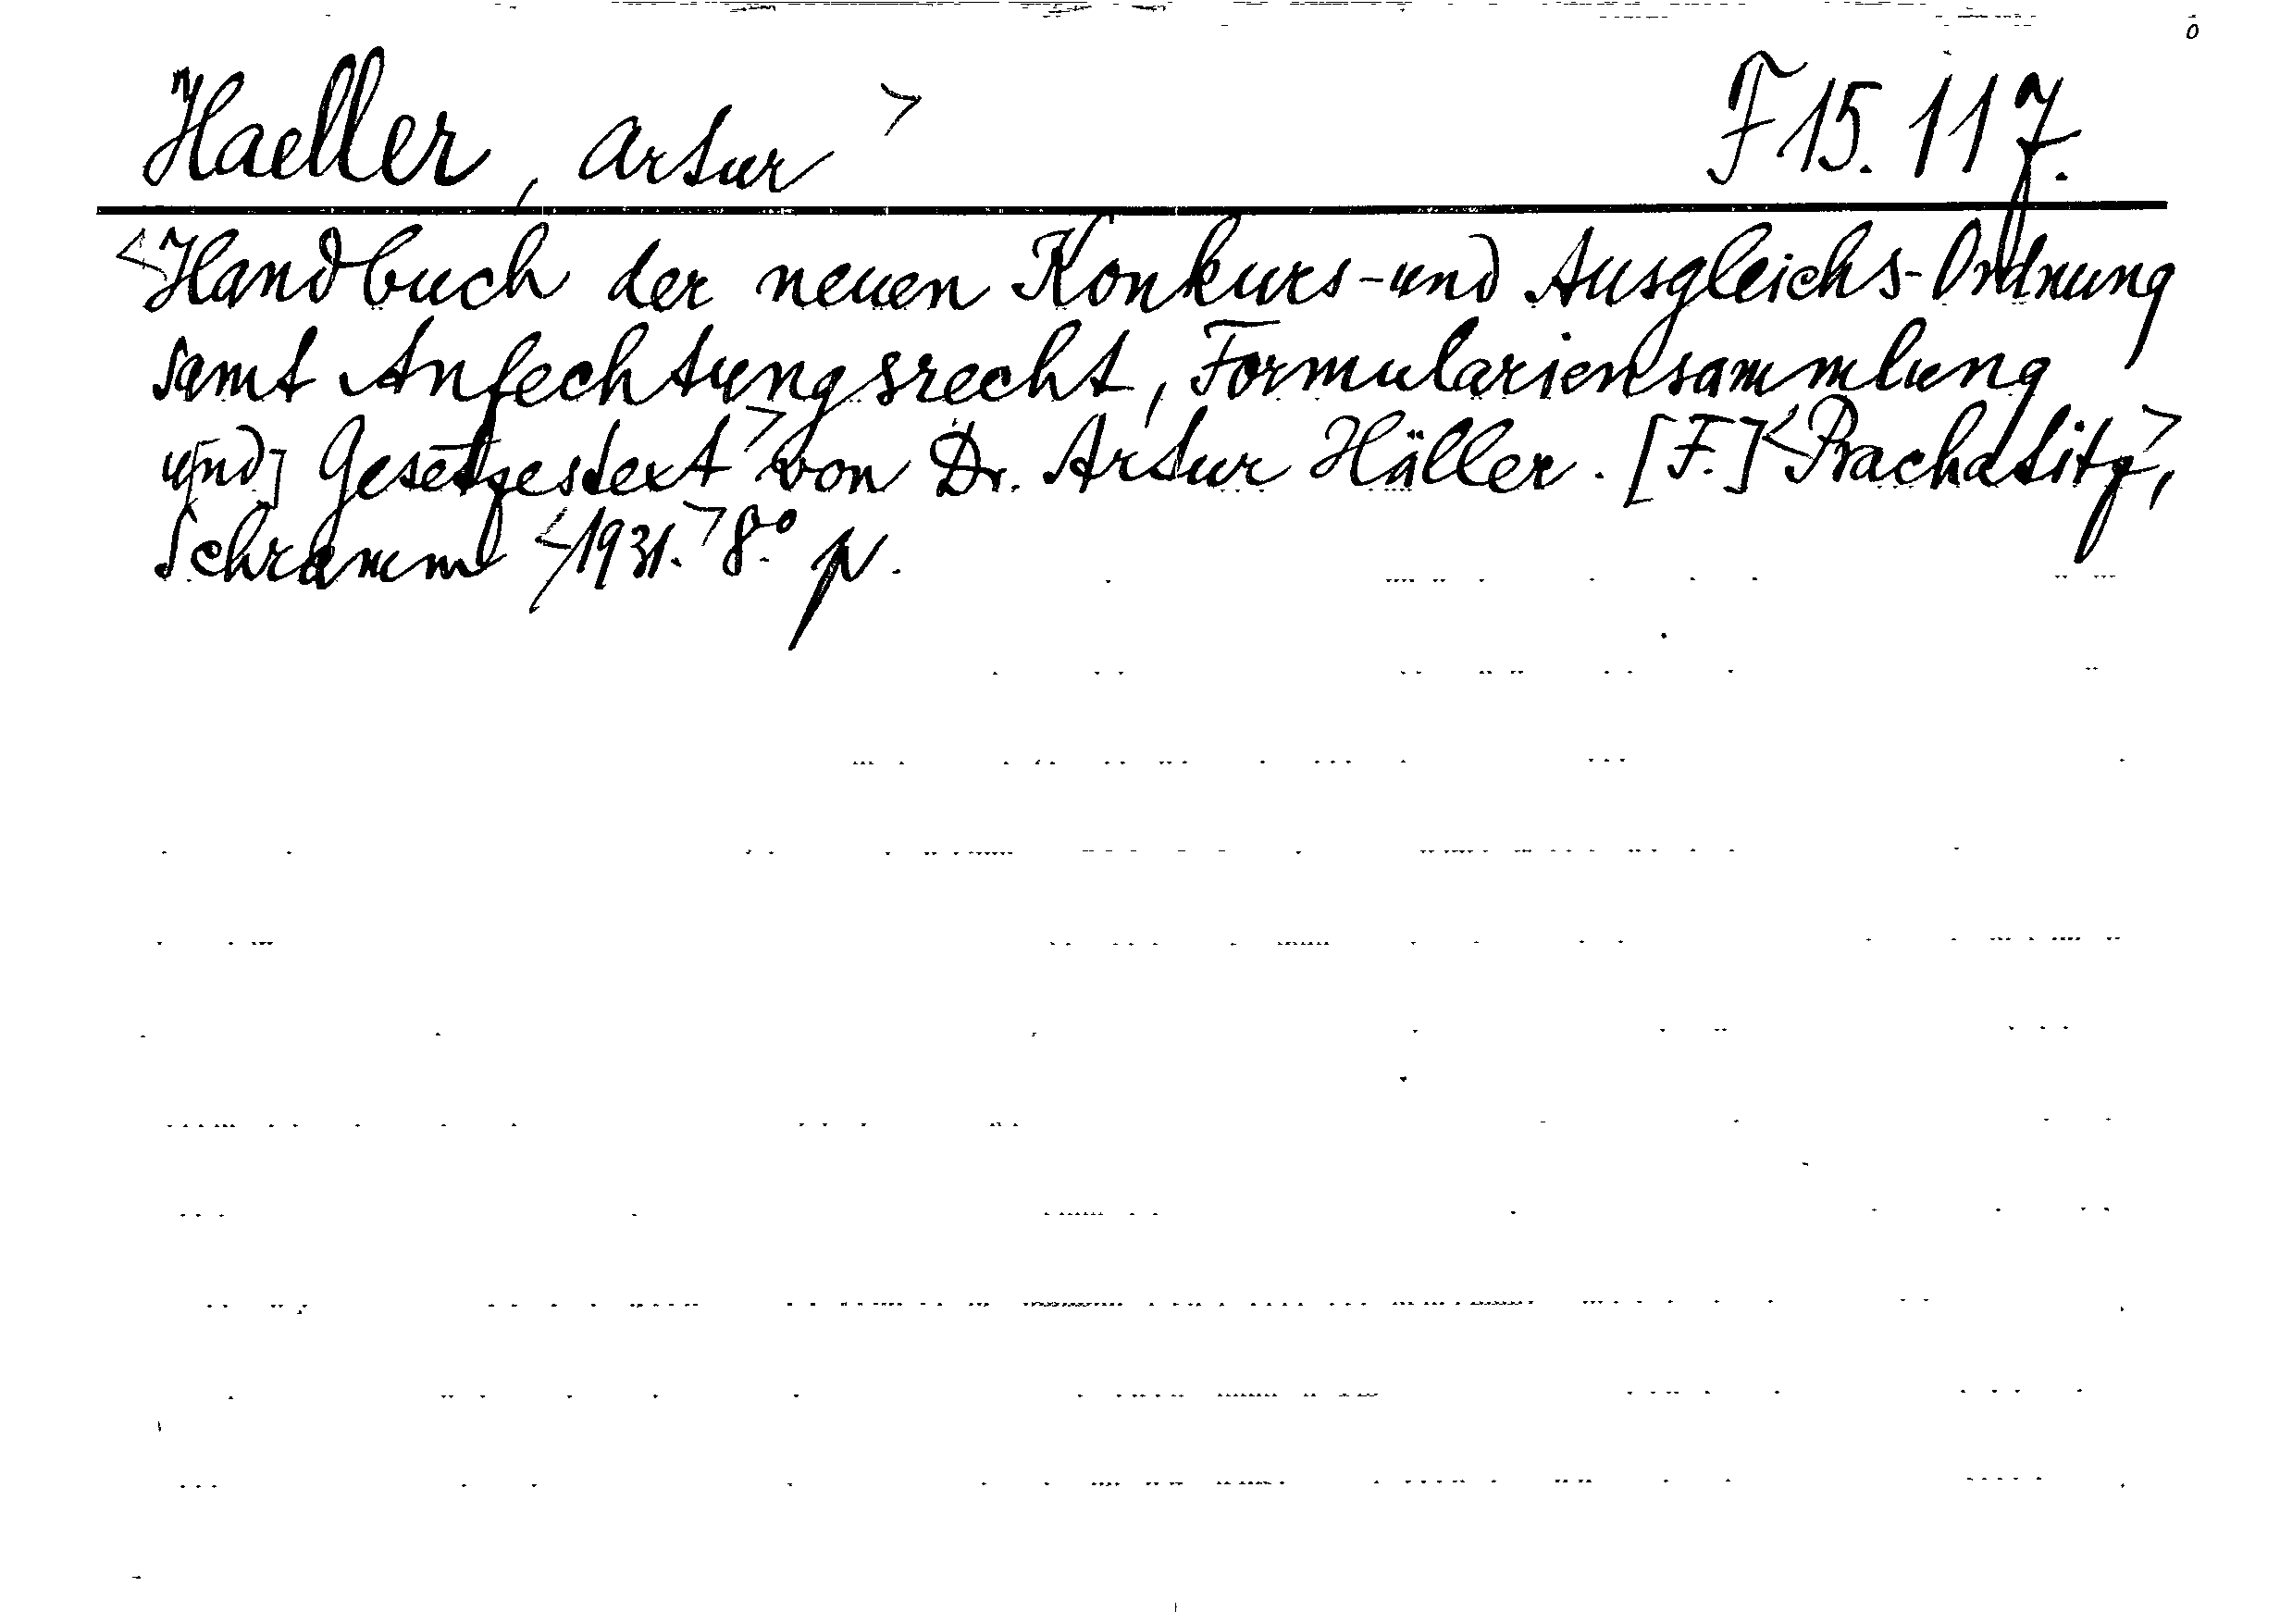 Haeller, Artur > F 15.117.
<Handbuch der neuen Konkurs-und Ausgleichs-Ordnung
samt Anfechtungsrecht, Formulariensammlung
u[nd] Gesetzestext> von Dr. Artur Häller. [F.] <Prachatitz>,
Schramm <1931.> 8.° p.